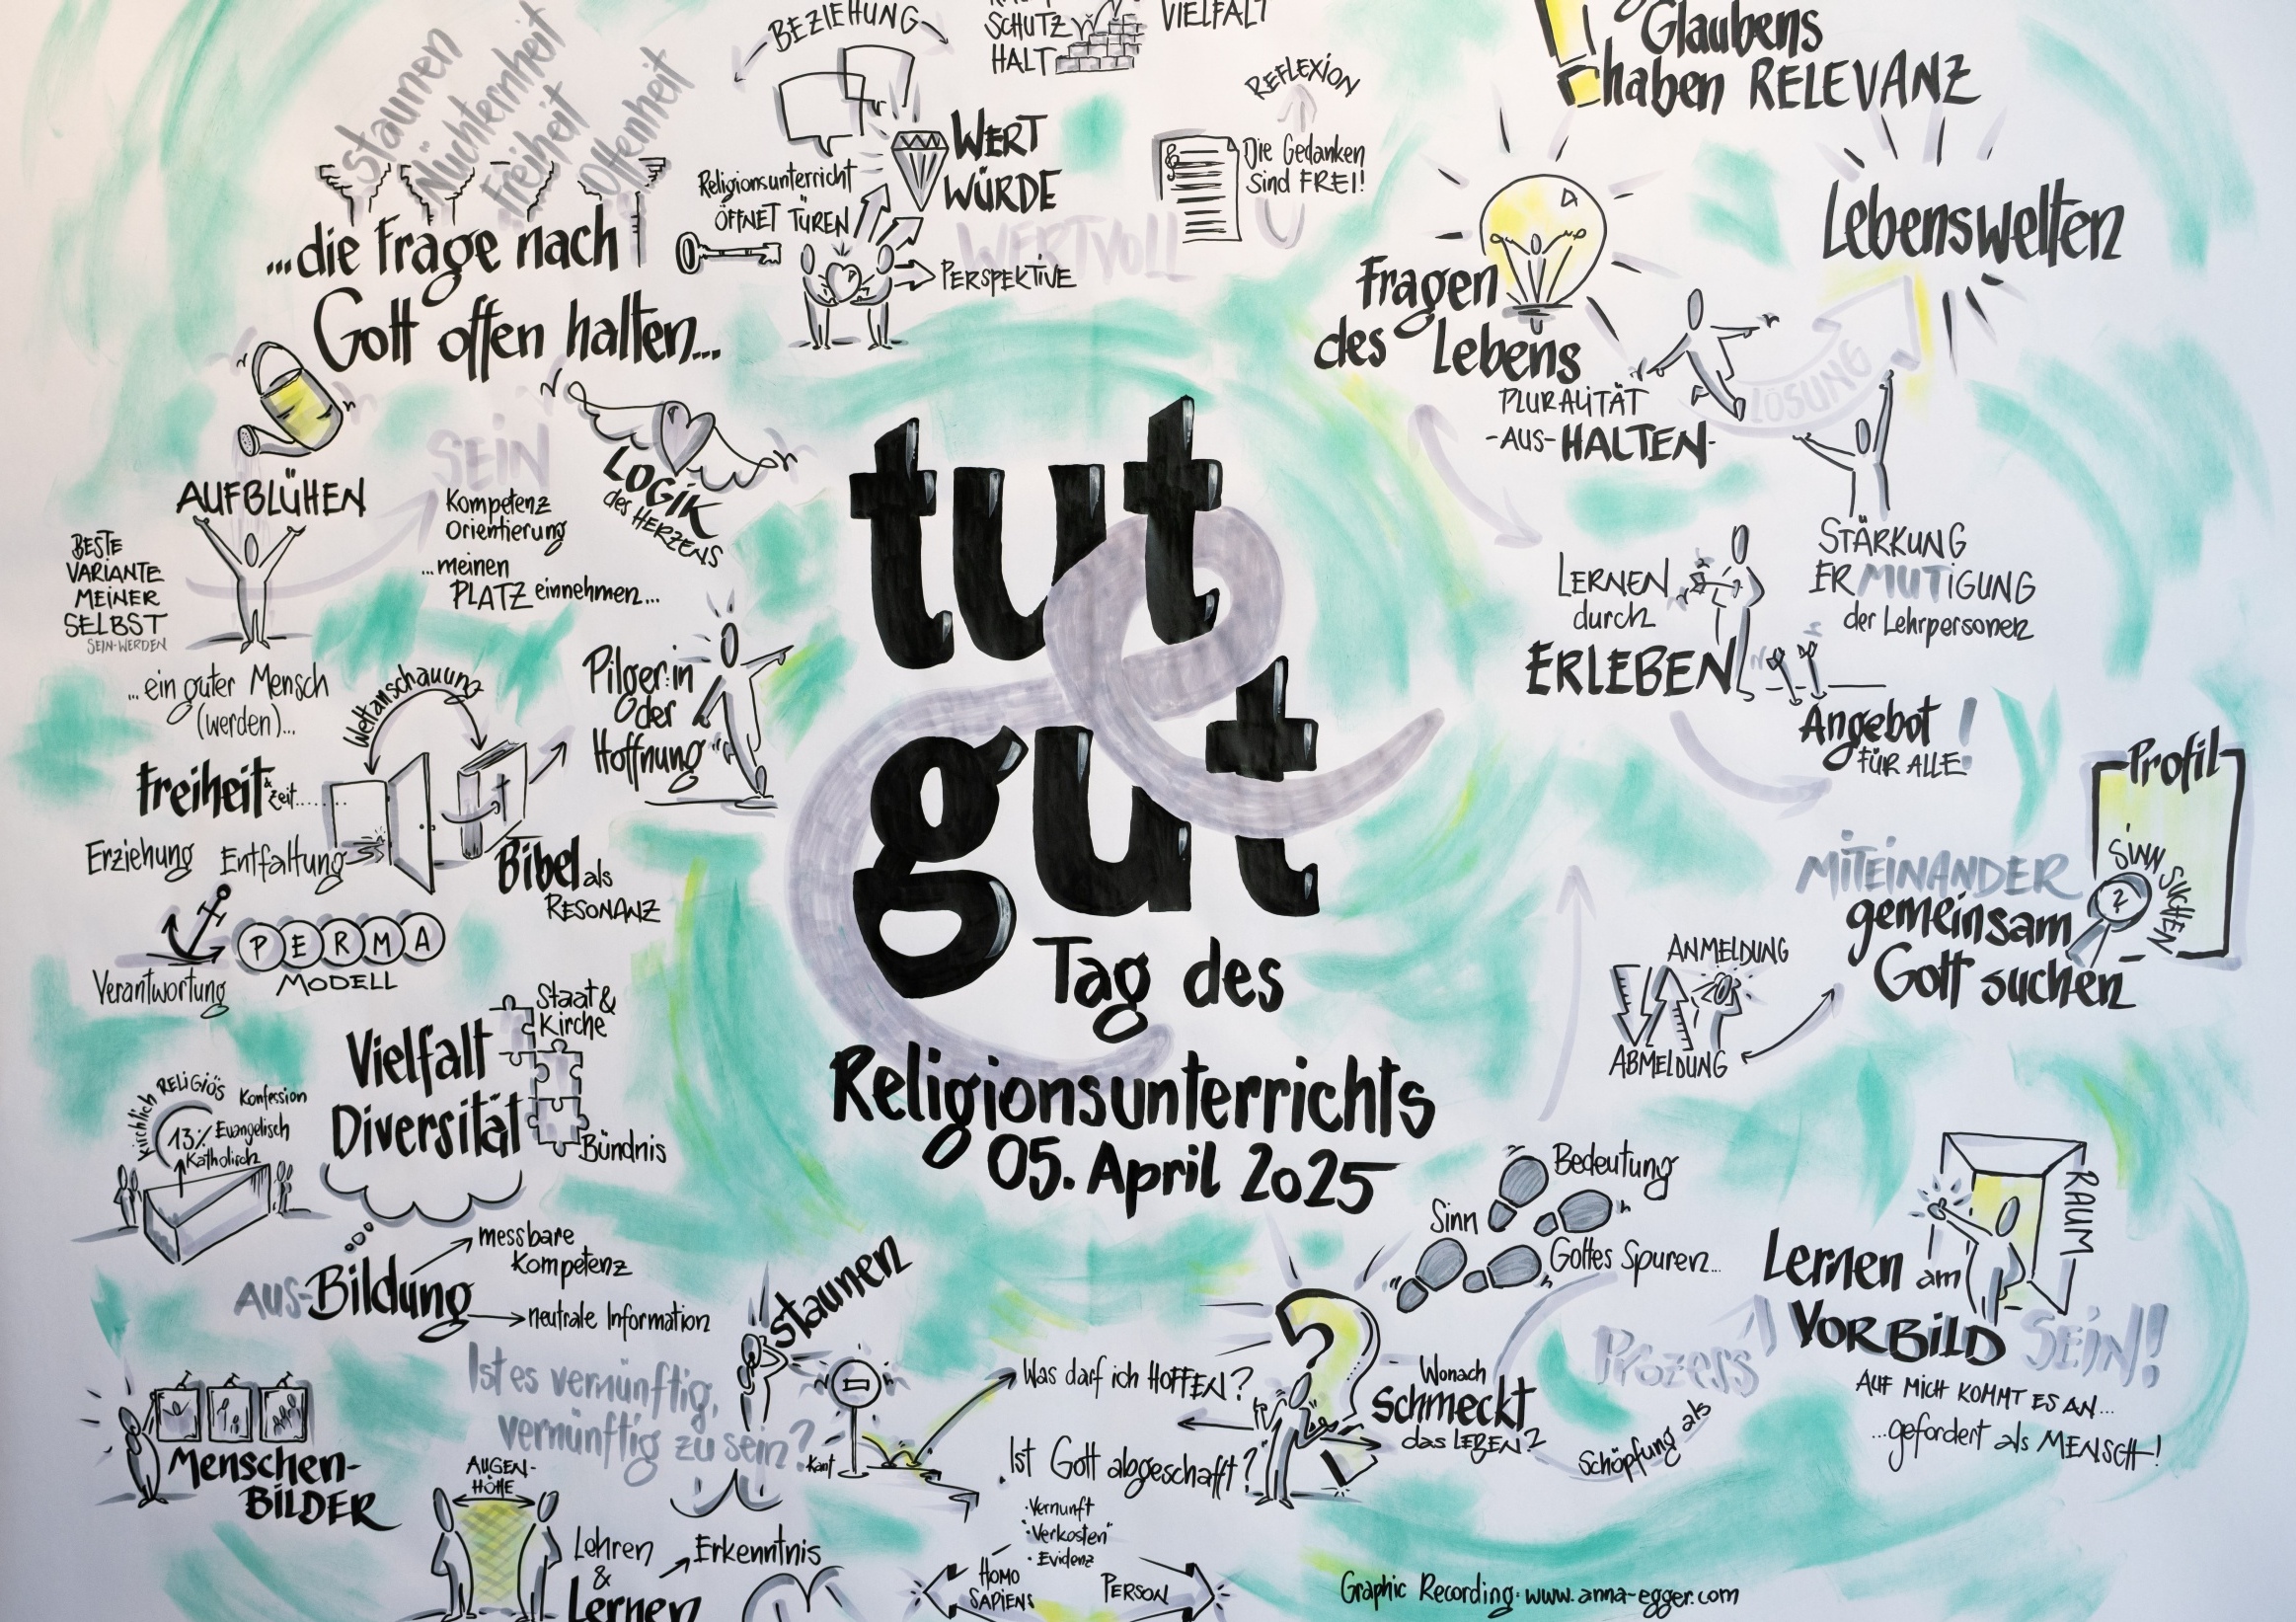 staunen
Nüchternheit
Freiheit
Offenheit
...die Frage nach
Gott offen halten...
BEZIEHUNG
Religionsunterricht
ÖFFNET TÜREN
WERT
WÜRDE
WERTVOLL
PERSPEKTIVE
SCHUTZ
HALT
VIELFALT
REFLEXION
Die Gedanken
sind FREI!
Glaubens
haben RELEVANZ
Lebenswelten
Fragen
des Lebens
PLURALITÄT
-AUS-HALTEN-
LÖSUNG
AUFBLÜHEN
BESTE
VARIANTE
MEINER
SELBST
SEIN-WERDEN
SEIN
Kompetenz
Orientierung
...meinen
PLATZ einnehmen...
LOGIK
des HERZENS
...ein guter Mensch
(werden)...
Weltanschauung
Pilger:in
der
Hoffnung
Freiheit & Zeit........
Erziehung Entfaltung
Bibel als
RESONANZ
Verantwortung
PERMA
MODELL
Vielfalt
Diversität
Staat &
Kirche
Bündnis
kirchlich RELIGIÖS
Konfession
13% Evangelisch
Katholisch
AUS-Bildung
messbare
Kompetenz
neutrale Information
tut
gut
Tag des
Religionsunterrichts
05. April 2025
LERNEN
durch
ERLEBEN
STÄRKUNG
ERMUTIGUNG
der Lehrpersonen
Angebot!
FÜR ALLE
Profil
SINN SUCHEN
?
MITEINANDER
gemeinsam
Gott suchen
ANMELDUNG
ABMELDUNG
Sinn
Bedeutung
Gottes Spuren...
Lernen am
VORBILD SEIN!
RAUM
AUF MICH KOMMT ES AN...
...gefordert als MENSCH!
Prozess
Schöpfung als
Wonach
schmeckt
das LEBEN?
staunen
Ist es vernünftig,
vernünftig zu sein?
Kant
Was darf ich HOFFEN?
Ist Gott abgeschafft?
·Vernunft
·"Verkosten"
·Evidenz
HOMO
SAPIENS
PERSON
Menschen-
BILDER
AUGEN-
HÖHE
Lehren
&
Lernen
Erkenntnis
Graphic Recording·www.anna-egger.com